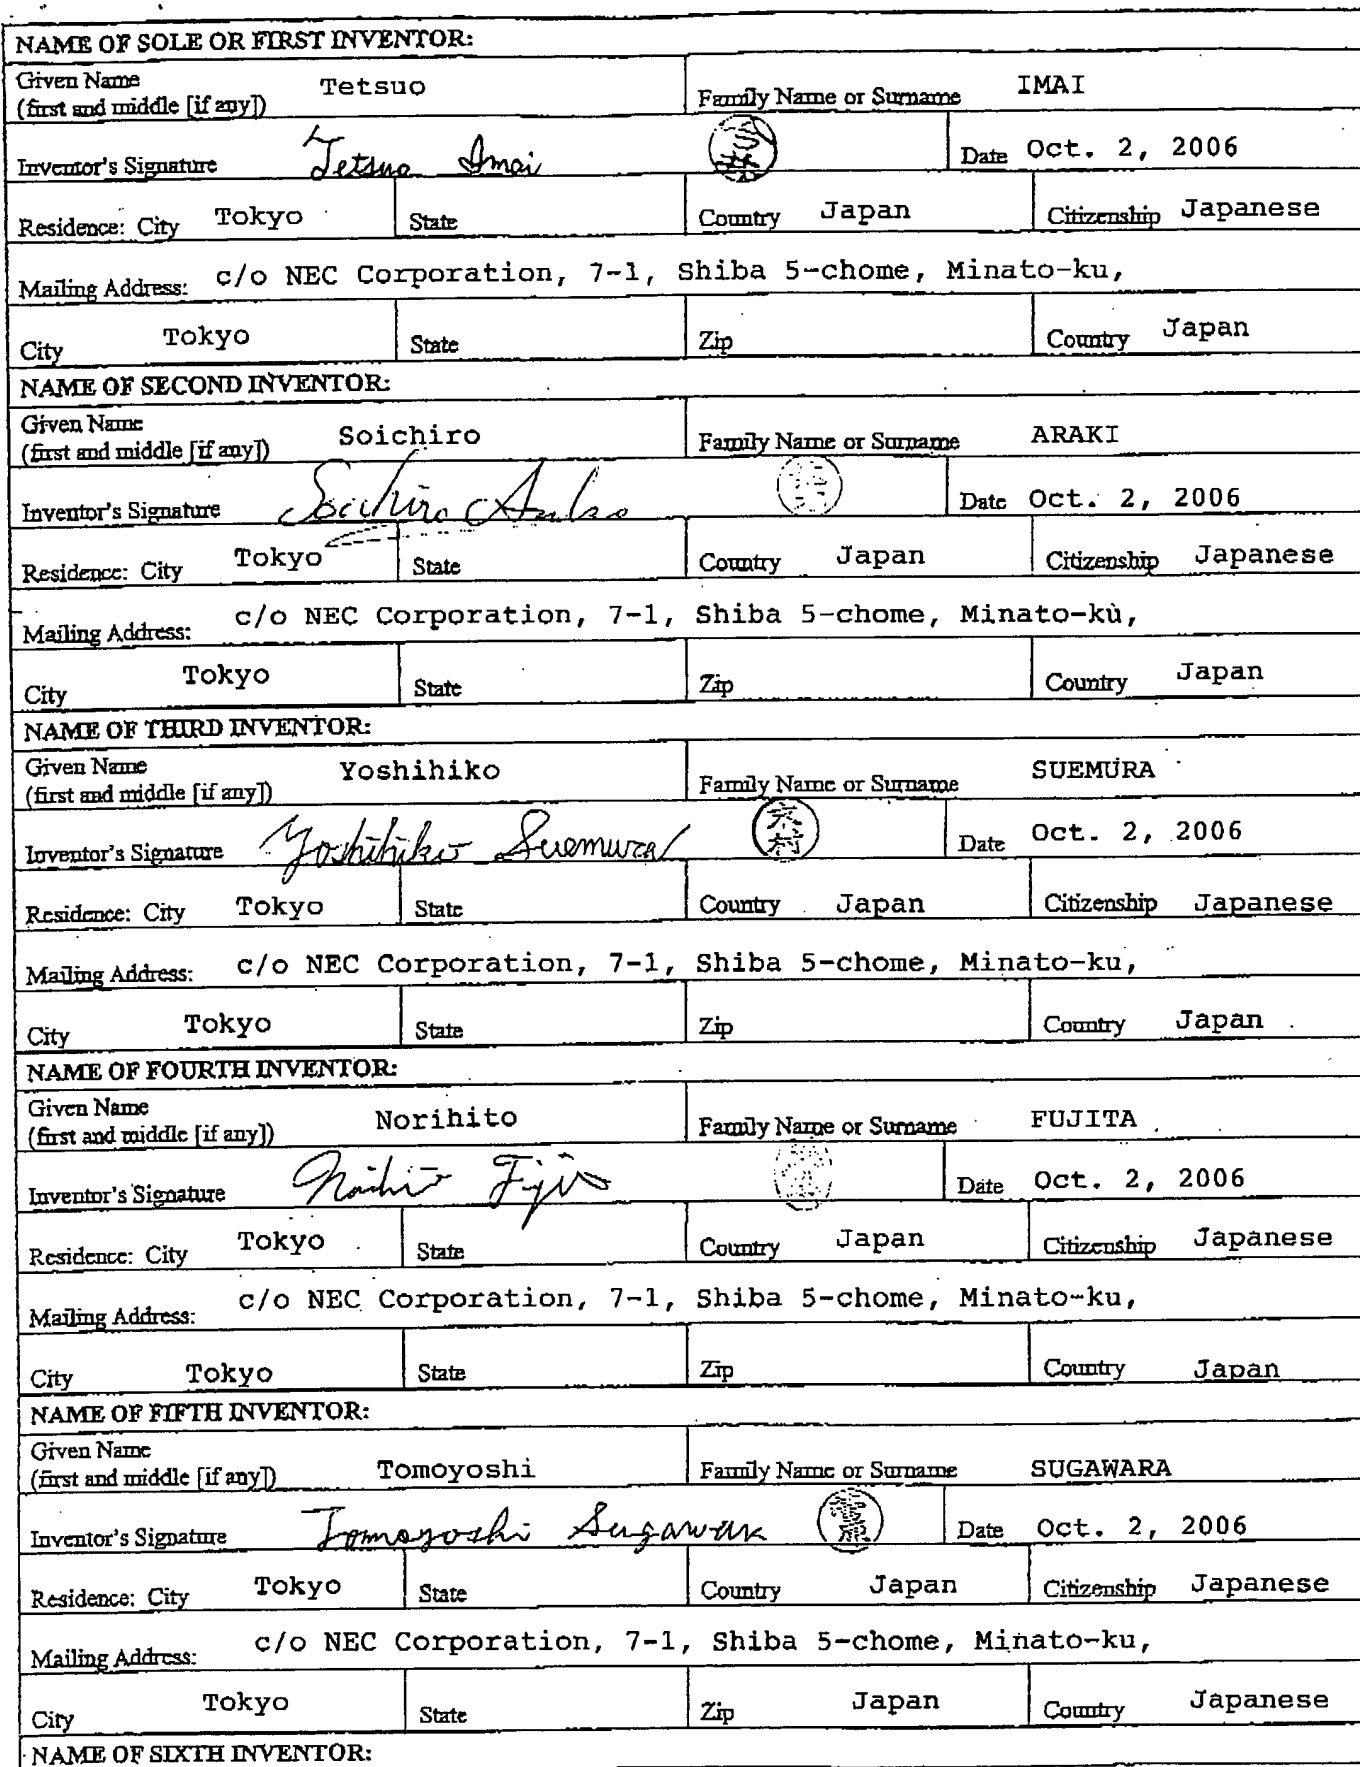 NAME OF SOLE OR FIRST INVENTOR:
Given Name
(first and middle [if any]) Tetsuo Family Name or Surname IMAI
Inventor's Signature Tetsuo Imai 今井 Date Oct. 2, 2006
Residence: City Tokyo State Country Japan Citizenship Japanese
Mailing Address: c/o NEC Corporation, 7-1, Shiba 5-chome, Minato-ku,
City Tokyo State Zip Country Japan
NAME OF SECOND INVENTOR:
Given Name
(first and middle [if any]) Soichiro Family Name or Surname ARAKI
Inventor's Signature Soichiro Araki Date Oct. 2, 2006
Residence: City Tokyo State Country Japan Citizenship Japanese
Mailing Address: c/o NEC Corporation, 7-1, Shiba 5-chome, Minato-ku,
City Tokyo State Zip Country Japan
NAME OF THIRD INVENTOR:
Given Name
(first and middle [if any]) Yoshihiko Family Name or Surname SUEMURA
Inventor's Signature Yoshihiko Suemura 末村 Date Oct. 2, 2006
Residence: City Tokyo State Country Japan Citizenship Japanese
Mailing Address: c/o NEC Corporation, 7-1, Shiba 5-chome, Minato-ku,
City Tokyo State Zip Country Japan
NAME OF FOURTH INVENTOR:
Given Name
(first and middle [if any]) Norihito Family Name or Surname FUJITA
Inventor's Signature Norihito Fujita Date Oct. 2, 2006
Residence: City Tokyo State Country Japan Citizenship Japanese
Mailing Address: c/o NEC Corporation, 7-1, Shiba 5-chome, Minato-ku,
City Tokyo State Zip Country Japan
NAME OF FIFTH INVENTOR:
Given Name
(first and middle [if any]) Tomoyoshi Family Name or Surname SUGAWARA
Inventor's Signature Tomoyoshi Sugawara Date Oct. 2, 2006
Residence: City Tokyo State Country Japan Citizenship Japanese
Mailing Address: c/o NEC Corporation, 7-1, Shiba 5-chome, Minato-ku,
City Tokyo State Zip Japan Country Japanese
NAME OF SIXTH INVENTOR: